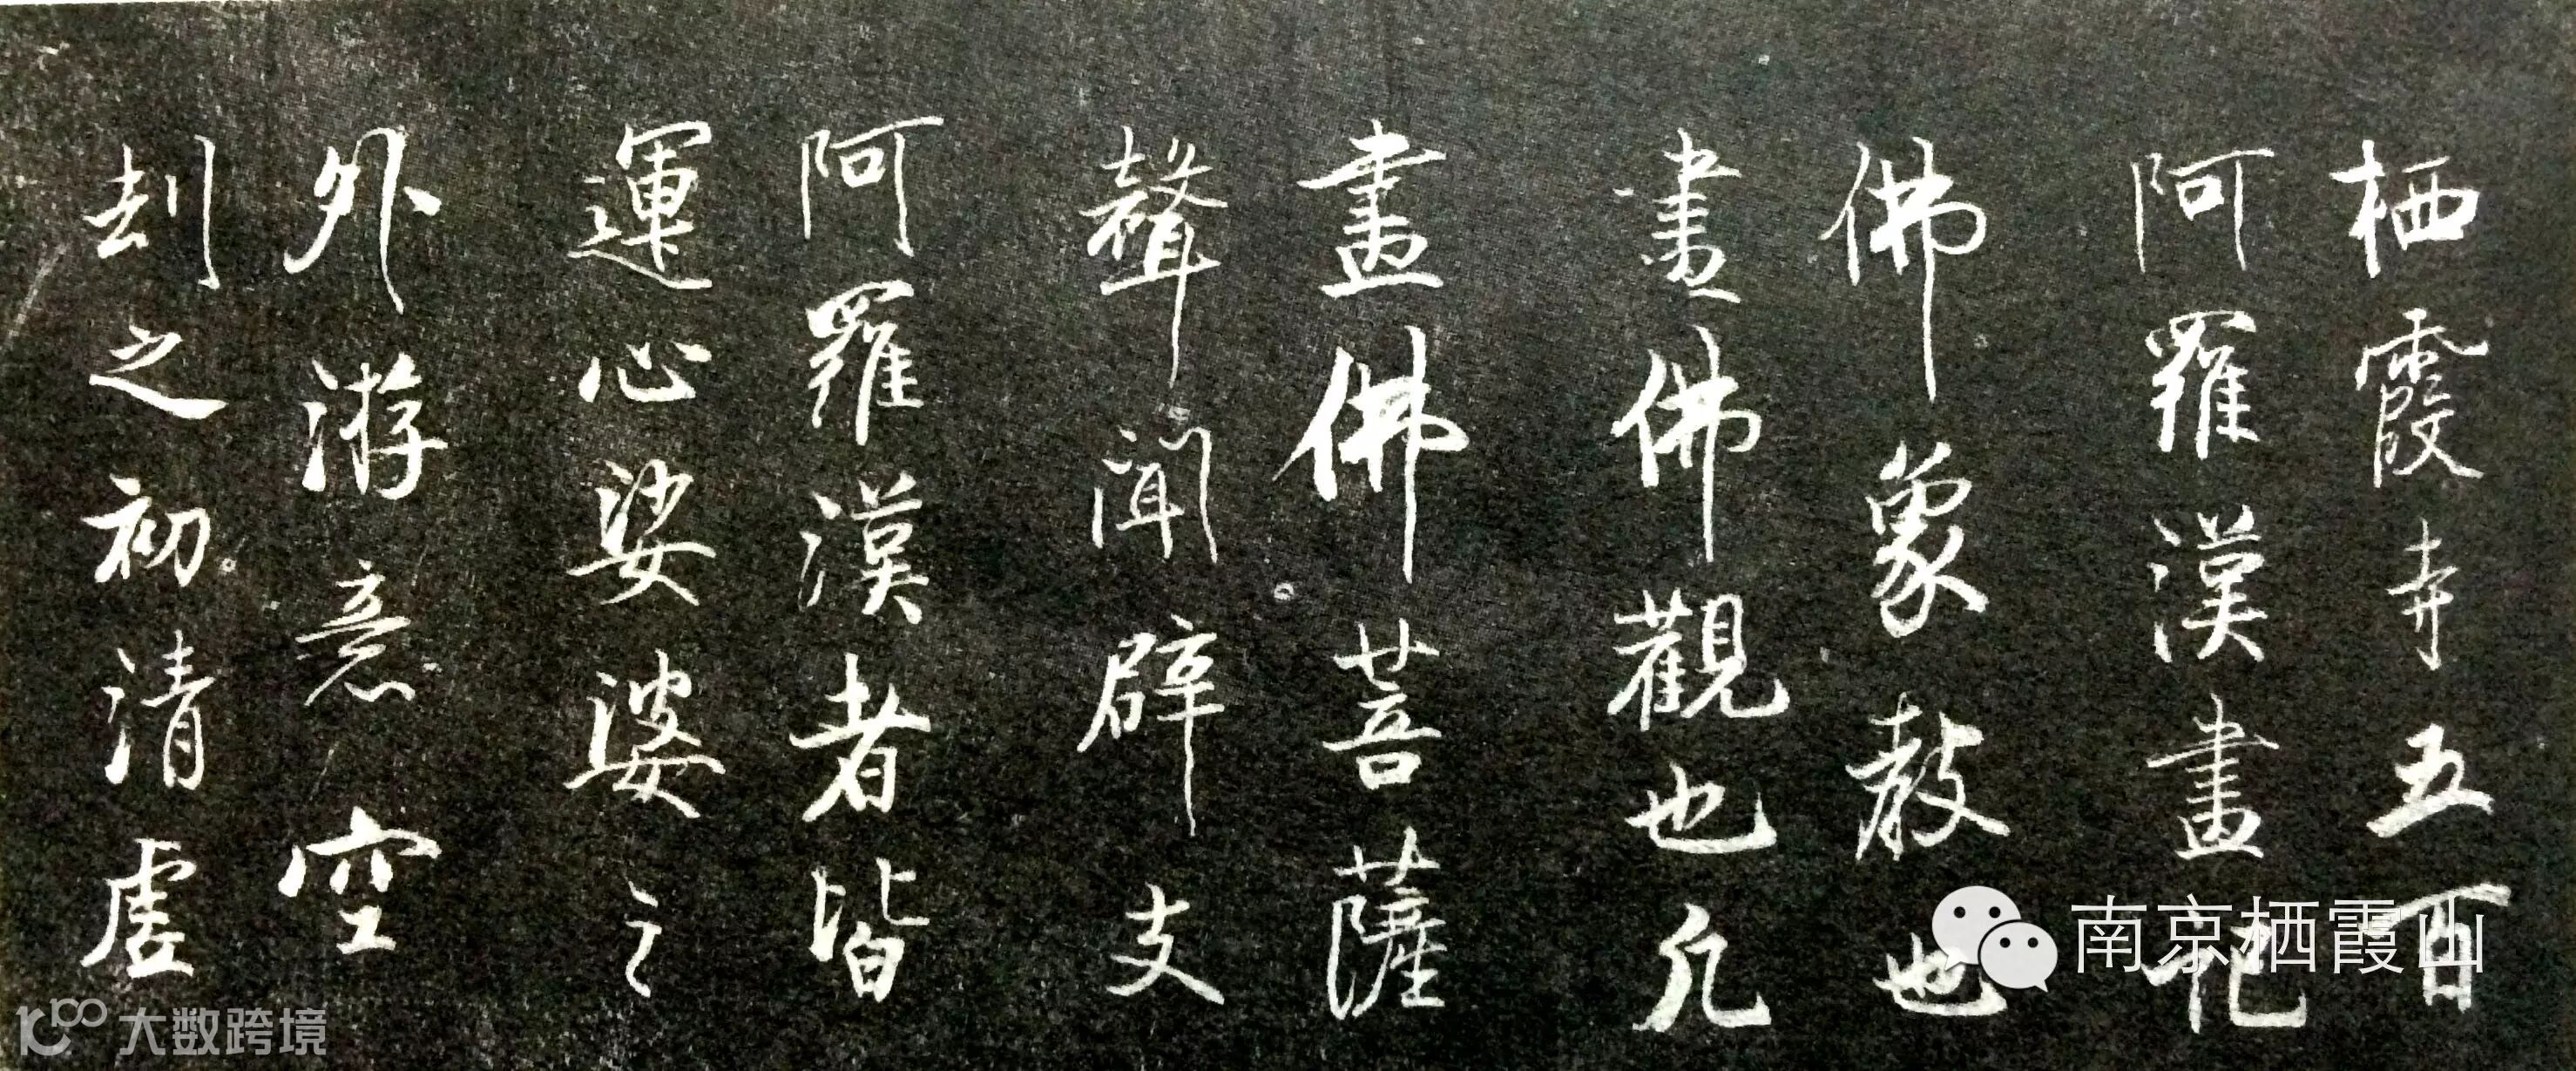 栖霞寺五百
阿羅漢畫記
佛象教也
畫佛觀也凡
畫佛菩薩
聲聞辟支
阿羅漢者皆
運心娑婆之
外游意空
刦之初清虛
南京栖霞山
大数跨境